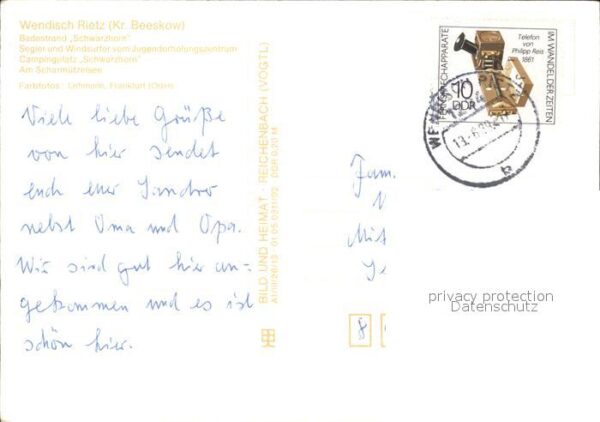 Wendisch Rietz (Kr. Beeskow)
Badestrand "Schwarzhorn"
Segler und Windsurfer vom Jugenderholungszentrum
Campingplatz "Schwarzhorn"
Am Scharmützelsee
Farbfotos: Lehmann, Frankfurt (Oder)
Viele liebe Grüße
von hier sendet
euch euer Sandro
nebst Oma und Opa.
Wir sind gut hier an-
gekommen und es ist
schön hier.
BILD UND HEIMAT · REICHENBACH (VOGTL)
FERNSPRECHAPPARATE
IM WANDEL DER ZEITEN
Telefon
von
Philipp Reis
1861
10
DDR
b
Fam.
Mit
8
privacy protection
Datenschutz